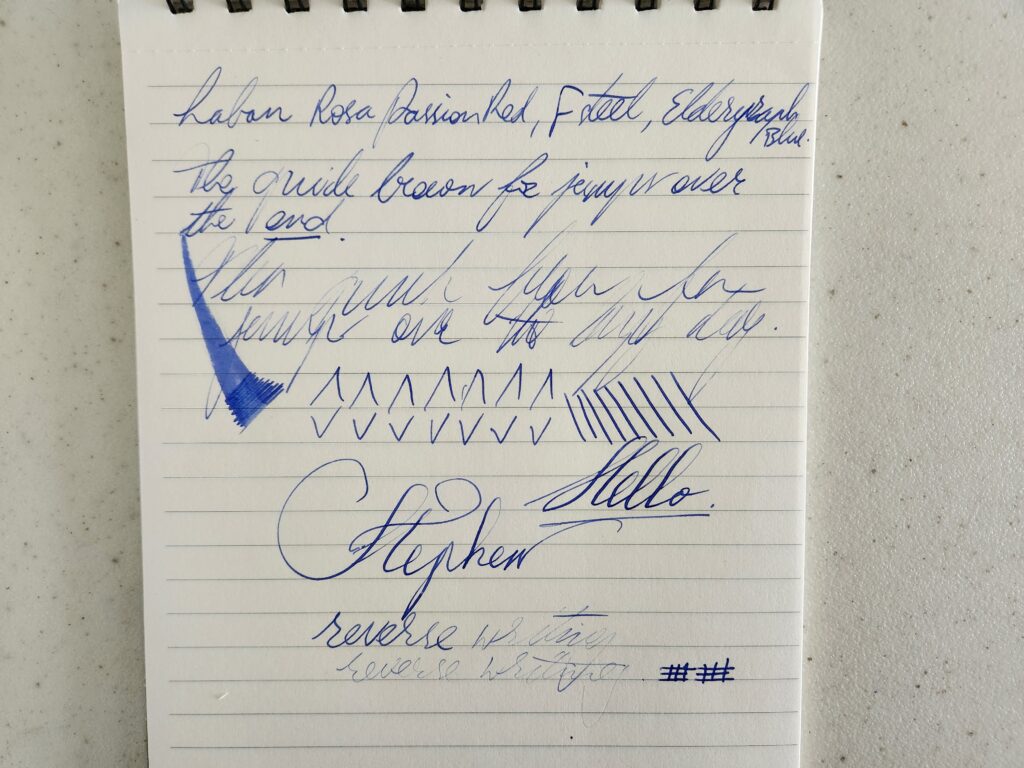 Laban Rosa Passion Red, F steel, Eldergraph
Blue.
The quick brown fox jumps over
the end.
quick brown fox
jumps over the lazy dog.
Hello.
Stephen
reverse writing
reverse writing